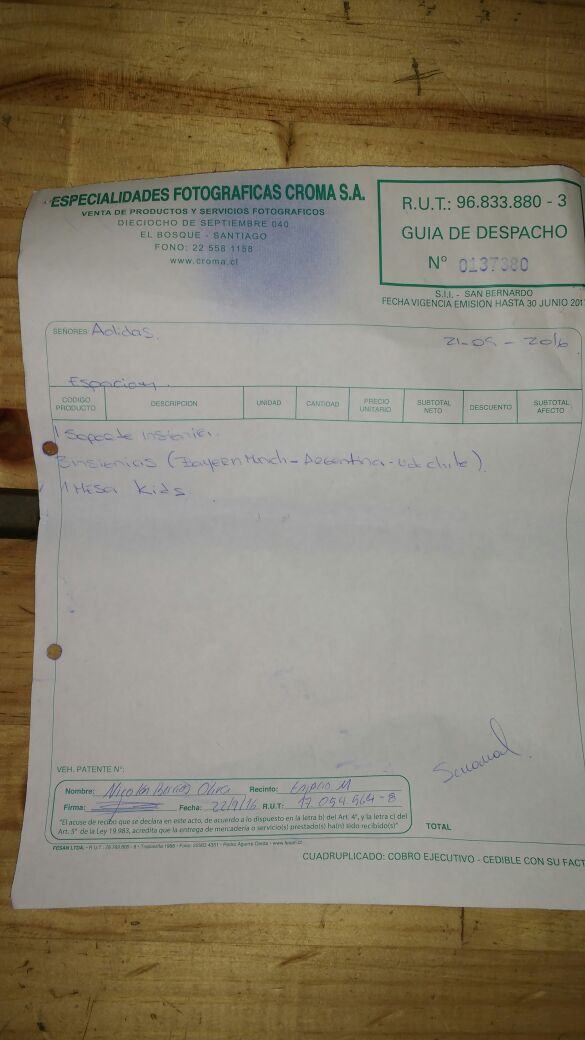 ESPECIALIDADES FOTOGRAFICAS CROMA S.A.
VENTA DE PRODUCTOS Y SERVICIOS FOTOGRAFICOS
DIECIOCHO DE SEPTIEMBRE 040
EL BOSQUE - SANTIAGO
FONO: 22 558 1158
www.croma.cl
R.U.T.: 96.833.880 - 3
GUIA DE DESPACHO
N° 0137380
S.I.I. - SAN BERNARDO
FECHA VIGENCIA EMISIÓN HASTA 30 JUNIO 201
SEÑORES: Adidas.
21-09-2016
CODIGO PRODUCTO DESCRIPCION UNIDAD CANTIDAD PRECIO UNITARIO SUBTOTAL NETO DESCUENTO SUBTOTAL AFECTO
1 Soporte
3 insignias (Bayern - Argentina - U de chile)
1 Mesa kids
VEH. PATENTE N°:
Nombre: Nicolas Recinto:
Firma: Fecha: 22/9/16 R.U.T.: 17.054.564-8
"El acuse de recibo que se declara en este acto, de acuerdo a lo dispuesto en la letra b) del Art. 4°, y la letra c) del
Art. 5° de la Ley 19.983, acredita que la entrega de mercadería o servicio(s) prestado(s) ha(n) sido recibido(s)"
TOTAL
FESAN LTDA.
CUADRUPLICADO: COBRO EJECUTIVO - CEDIBLE CON SU FACT